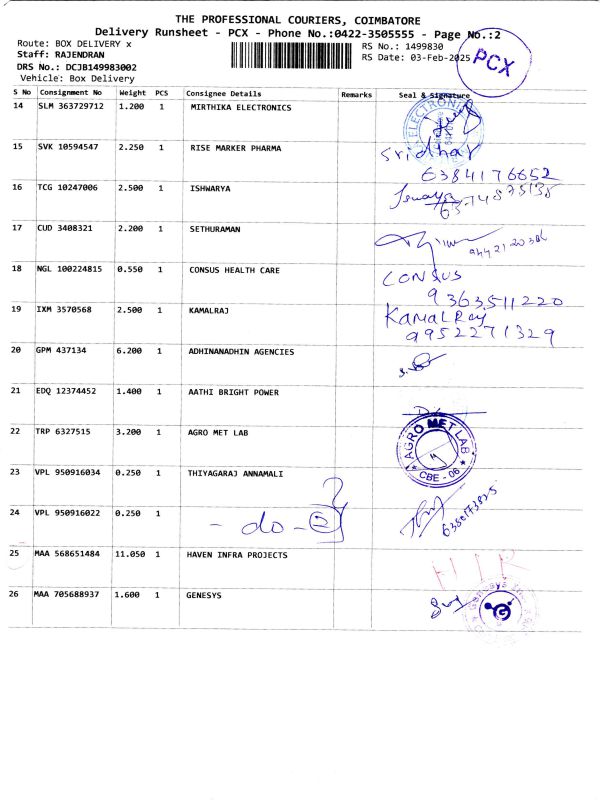 THE PROFESSIONAL COURIERS, COIMBATORE
Delivery Runsheet - PCX - Phone No.:0422-3505555 - Page No.:2
Route: BOX DELIVERY x
Staff: RAJENDRAN
DRS No.: DCJB149983002
Vehicle: Box Delivery
RS No.: 1499830
RS Date: 03-Feb-2025
PCX
S No Consignment No Weight PCS Consignee Details Remarks Seal & Signature
14 SLM 363729712 1.200 1 MIRTHIKA ELECTRONICS
ELECTRONICS
15 SVK 10594547 2.250 1 RISE MARKER PHARMA
Sridhar
6384176652
16 TCG 10247006 2.500 1 ISHWARYA
17 CUD 3408321 2.200 1 SETHURAMAN
18 NGL 100224815 0.550 1 CONSUS HEALTH CARE
CONSUS
9363511220
19 IXM 3570568 2.500 1 KAMALRAJ
KamalRaj
9952271329
20 GPM 437134 6.200 1 ADHINANADHIN AGENCIES
21 EDQ 12374452 1.400 1 AATHI BRIGHT POWER
22 TRP 6327515 3.200 1 AGRO MET LAB
AGRO MET LAB
CBE - 06
23 VPL 950916034 0.250 1 THIYAGARAJ ANNAMALI
24 VPL 950916022 0.250 1
- do - 2
25 MAA 568651484 11.050 1 HAVEN INFRA PROJECTS
26 MAA 705688937 1.600 1 GENESYS